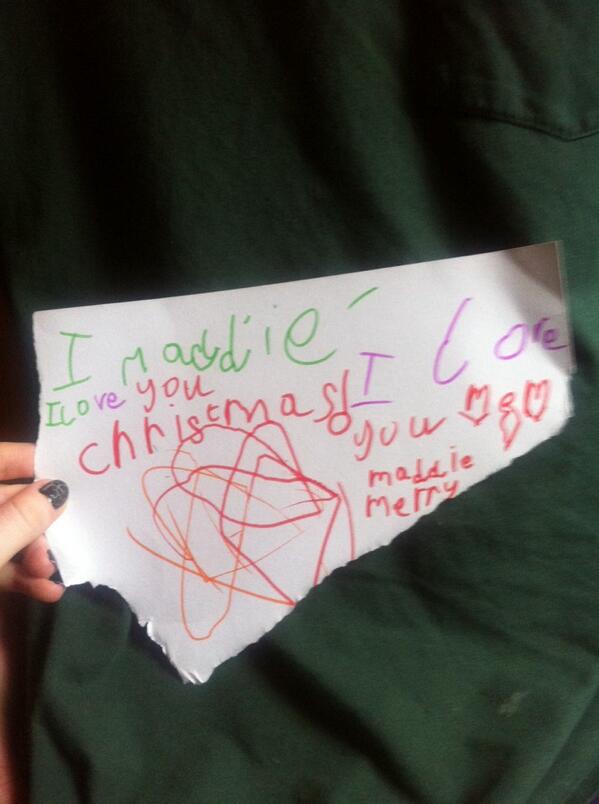 I maddie
I Love you
christmas!
I Love
you
maddie
merry